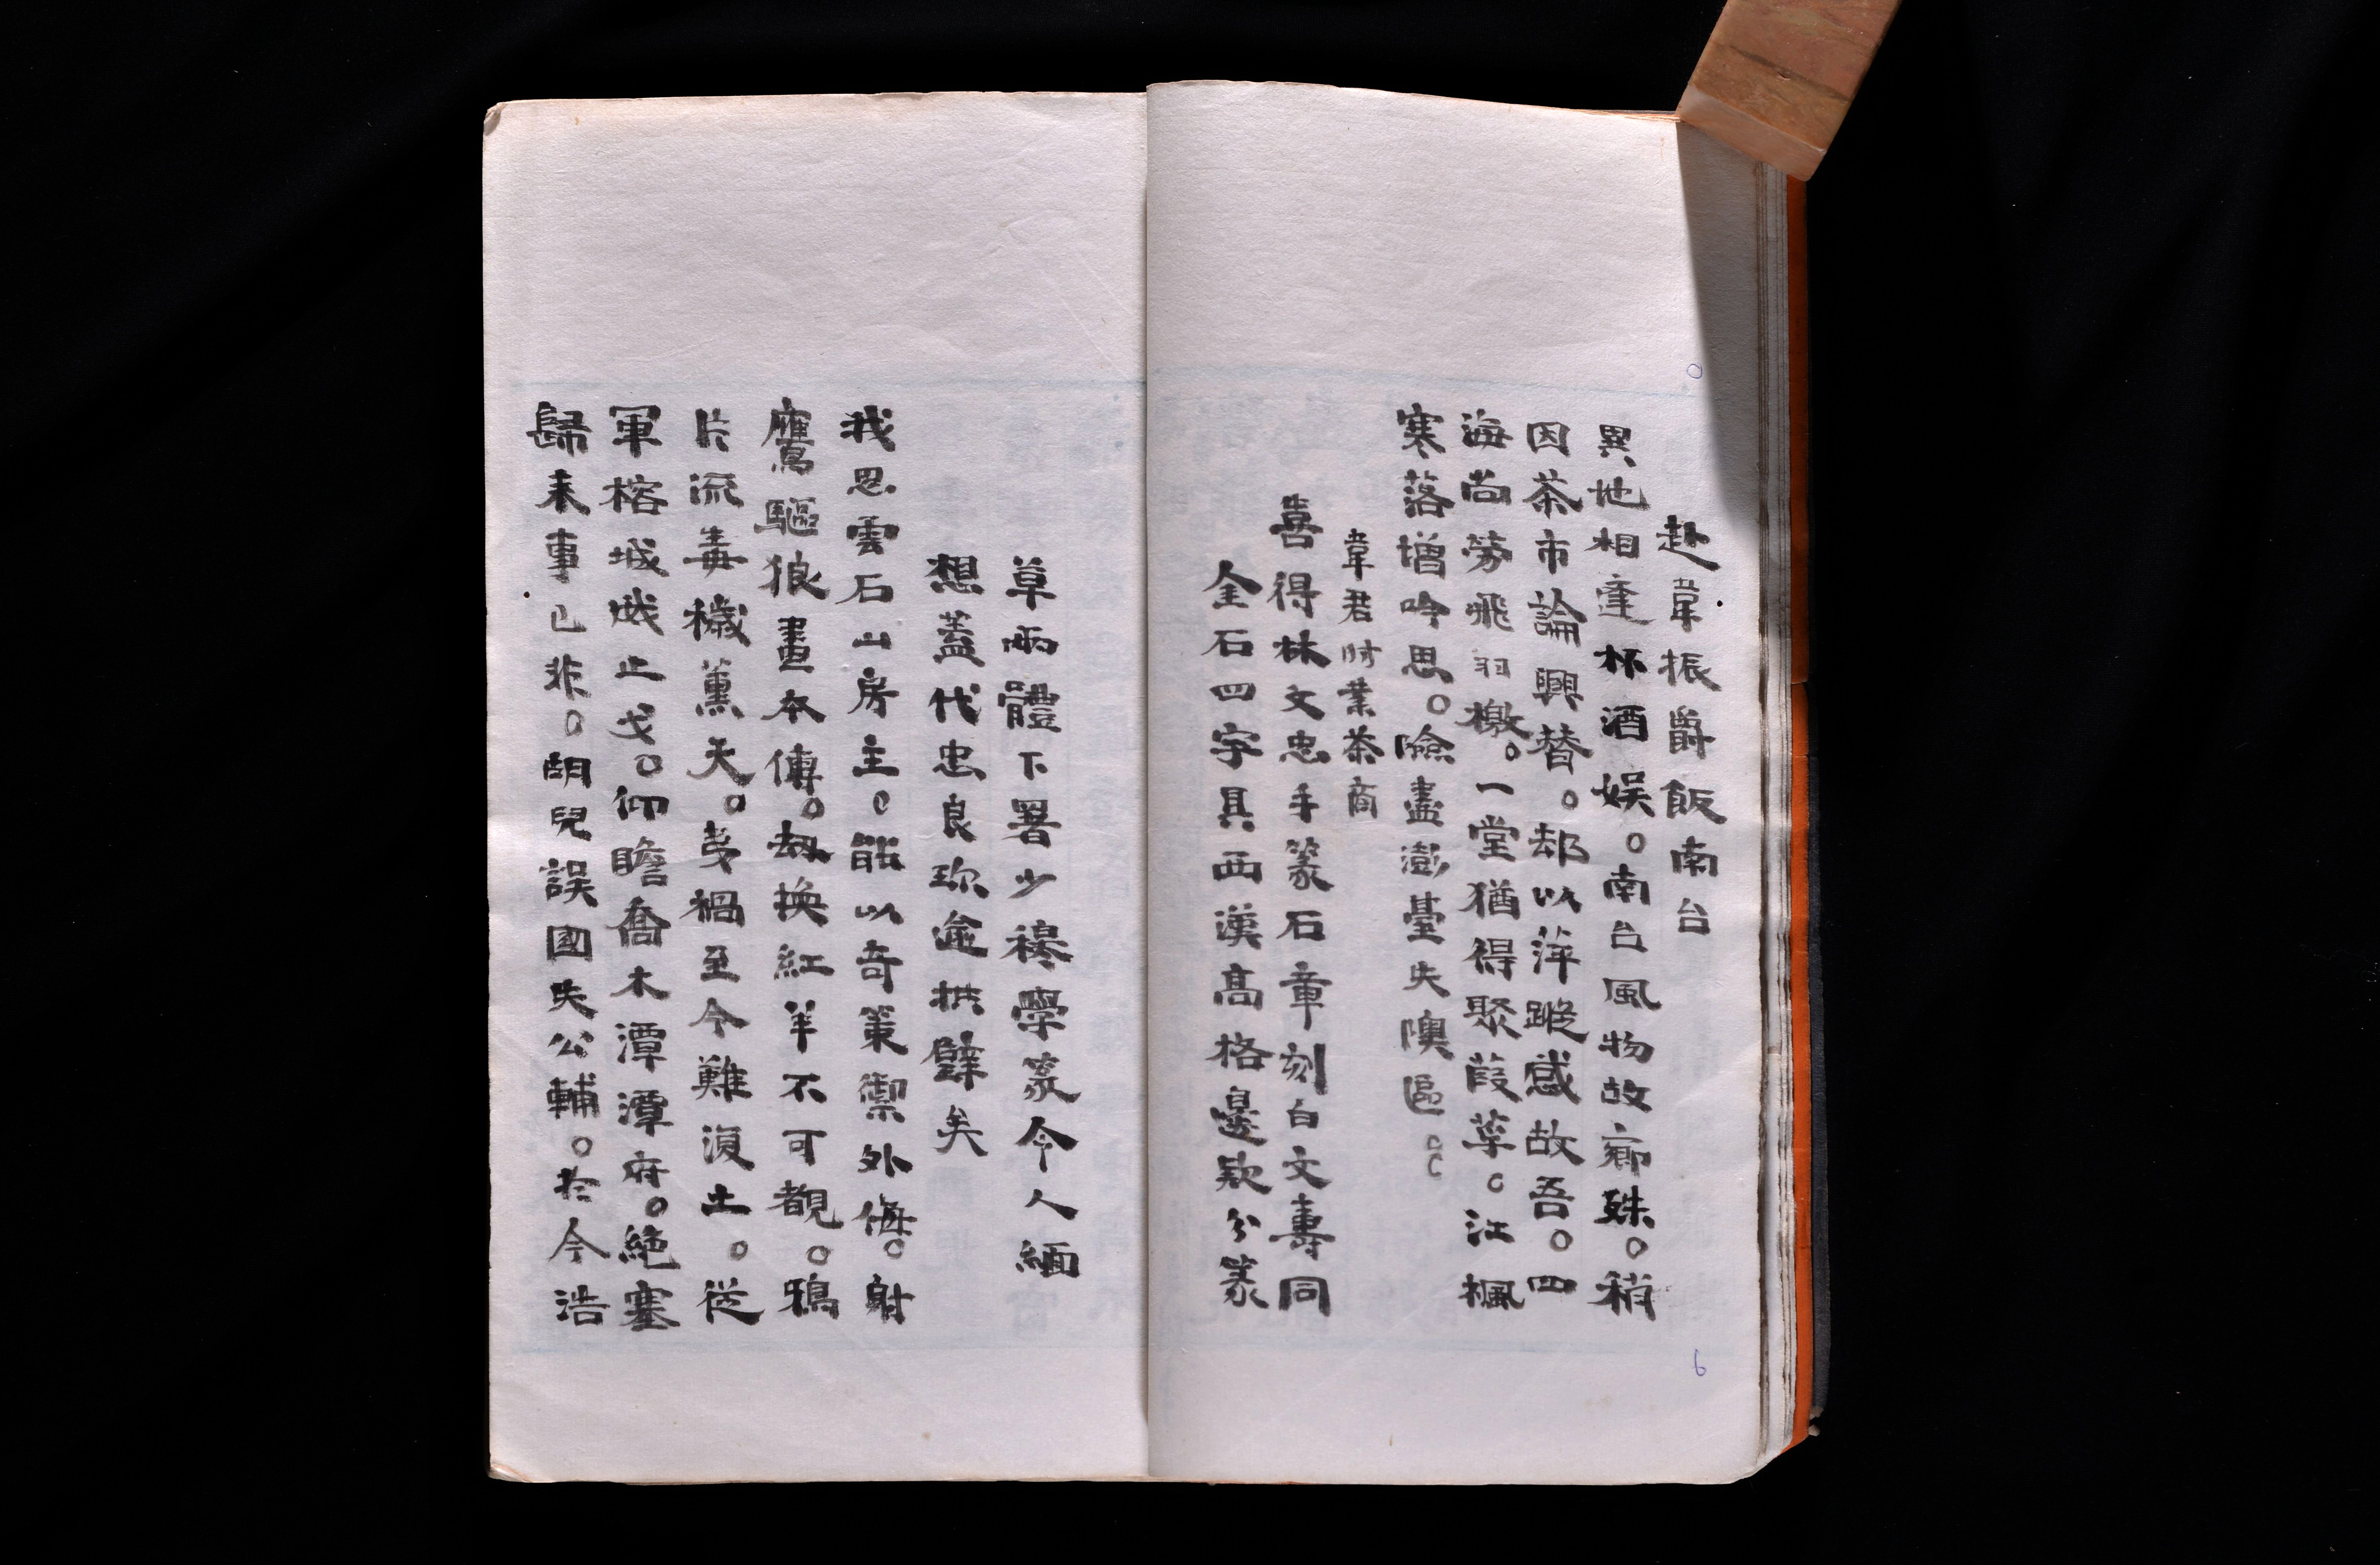 赴韋振爵飯南台
異地相逢杯酒娱。南台風物故鄉殊。稍
因茶市論興替。却以萍蹤感故吾。四
海尚勞飛羽檄。一堂猶得聚葭莩。江楓
寒落增吟思。險盡澎臺失隩區。
韋君時業茶商
喜得林文忠手篆石章刻白文壽同
金石四字具西漢高格邊欵分篆
草兩體下署少穆學篆今人緬
想蓋代忠良珎逾拱璧矣
我思雲石山房主。能以奇策禦外侮。射
鷹驅狼畫本傳。劫換紅羊不可覩。鴉
片流毒穢薰天。夷禍至今難復土。從
軍榕城戍止戈。仰瞻喬木潭潭府。絕塞
歸来事已非。胡兒誤國失公輔。於今浩
6